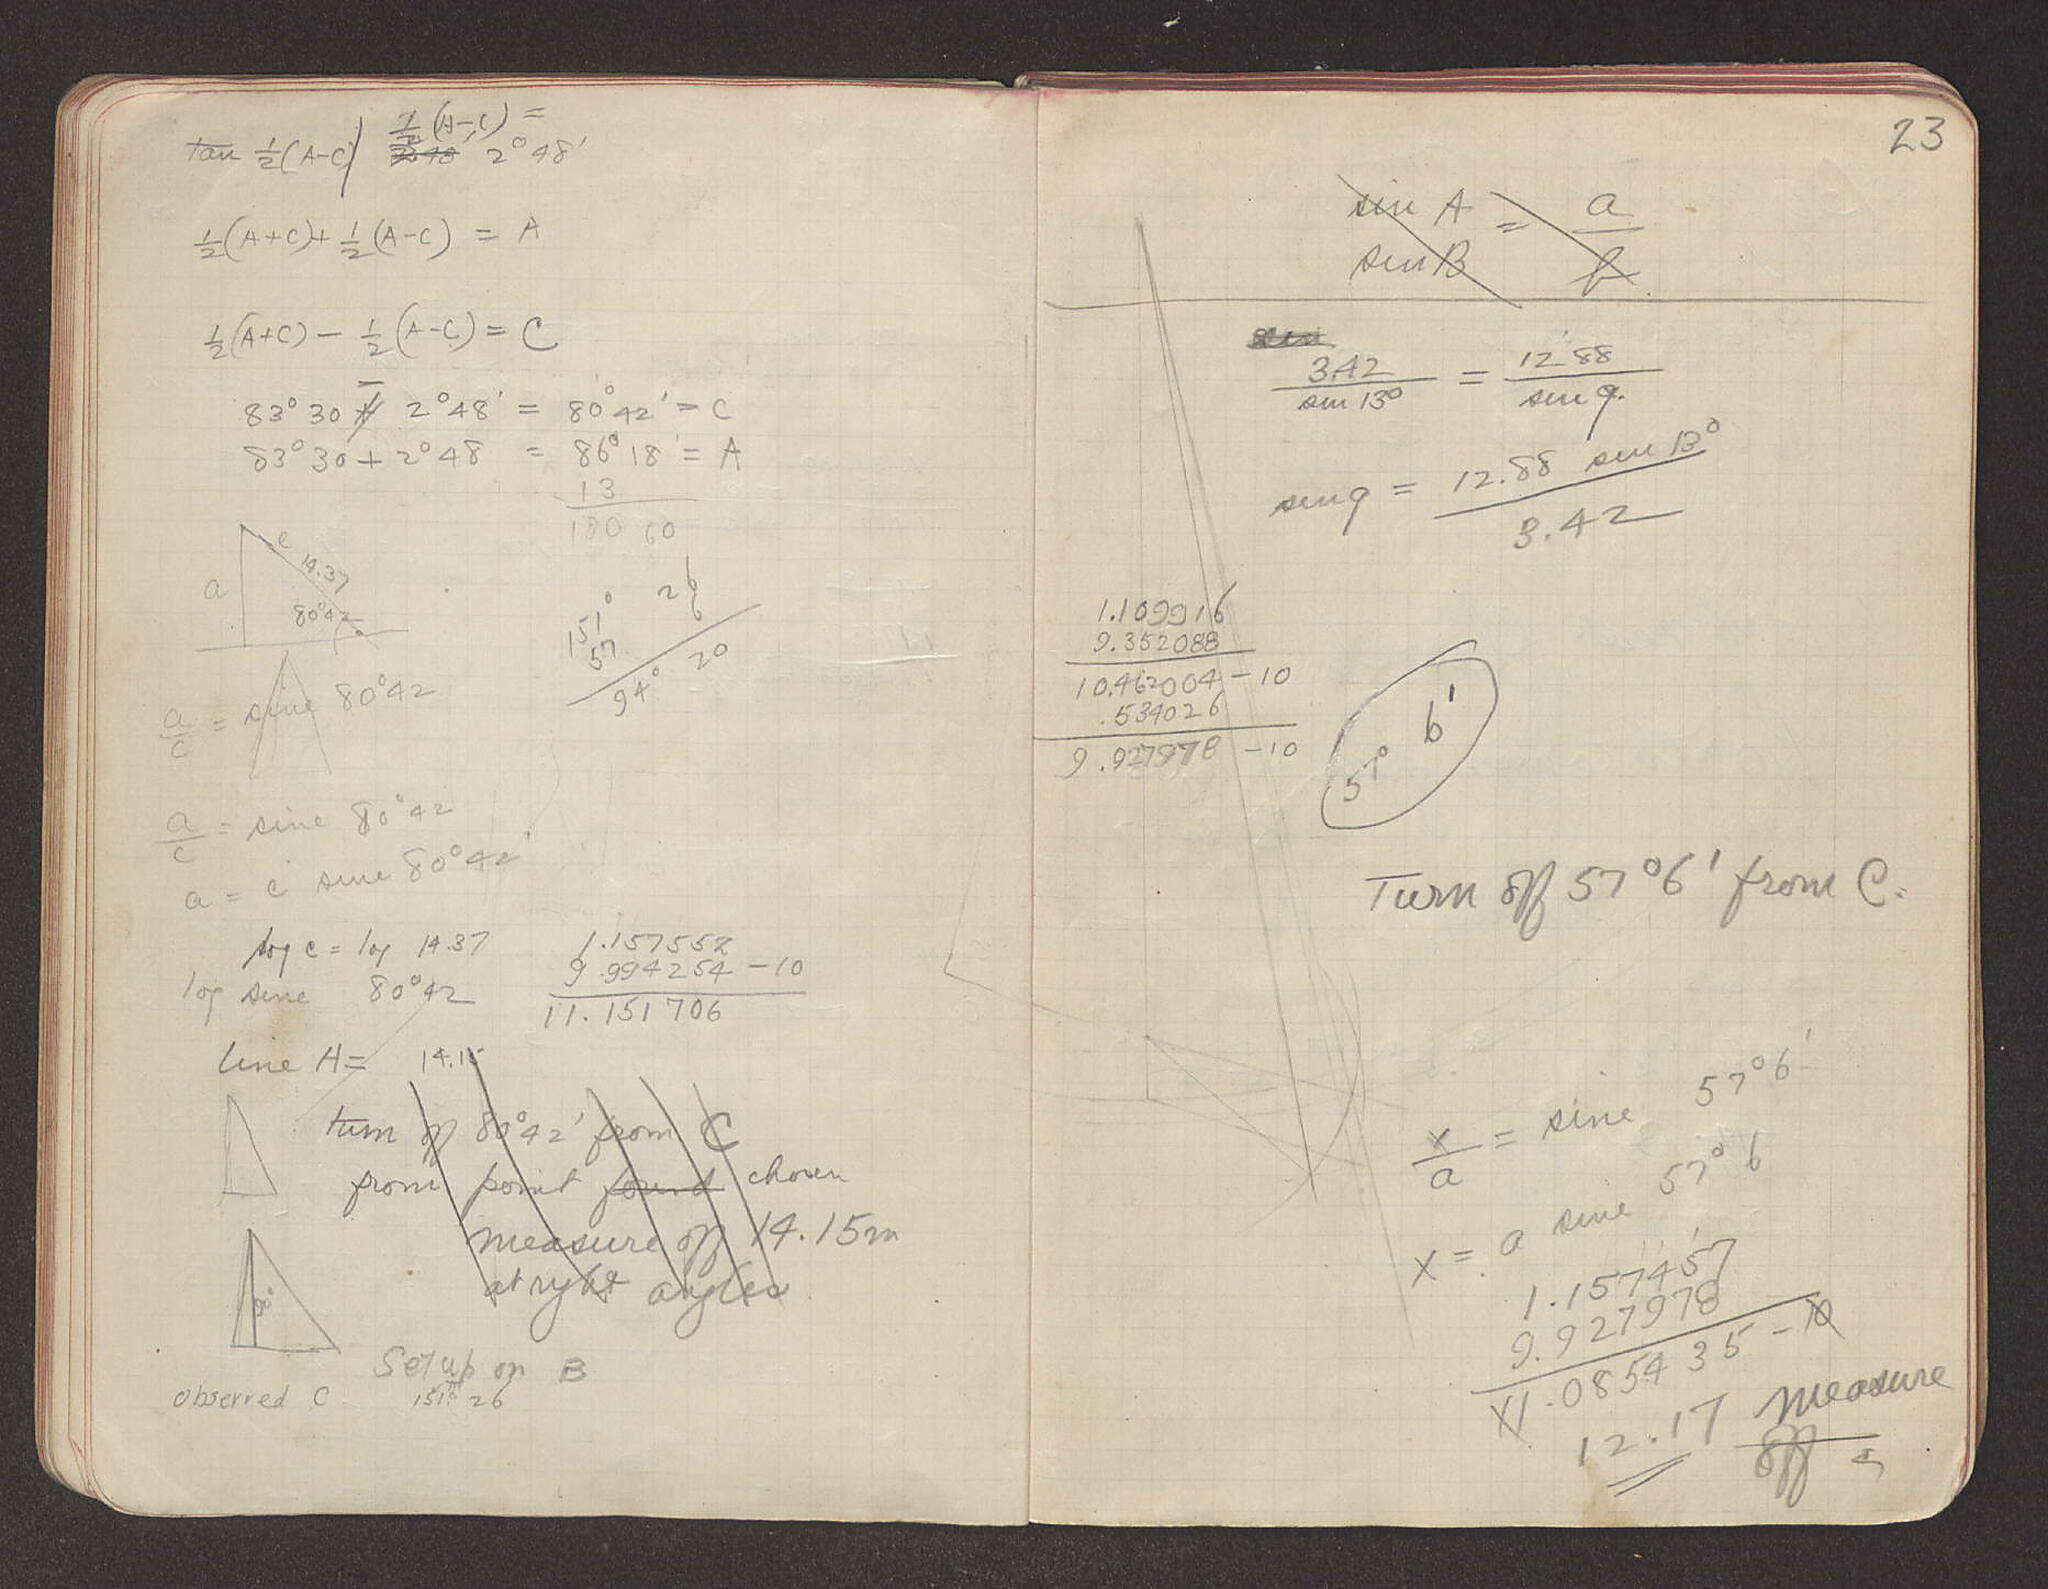 tan ½(A-C)
½(A-C) =
2°48'
½(A+C) + ½(A-C) = A
½(A+C) - ½(A-C) = C
83°30 - 2°48' = 80°42' = C
83°30 + 2°48 = 86°18' = A
13
180 60
a
c
14.37
80°42
151° 26
57 6
94° 20
a/c = sine 80°42
a/c = sine 80°42
a = c sine 80°42'
log c = log 14.37 1.157552
log sine 80°42 9.994254 - 10
11.151706
Line A = 14.15
turn off 80°42' from C
from point found chosen
measure off 14.15m
at right angles
90°
Set up on B
observed C 151° 26
23
sin A / sin B = a / b
3.42 / sin 13° = 12.88 / sin q.
sin q = 12.88 sin 13° / 3.42
1.109916
9.352088
10.462004 - 10
.534026
9.927978 - 10
57° 6'
Turn off 57°6' from C.
x/a = sine 57°6'
x = a sine 57°6
1.157457
9.927978
11.085435 - 10
12.17 measure
off